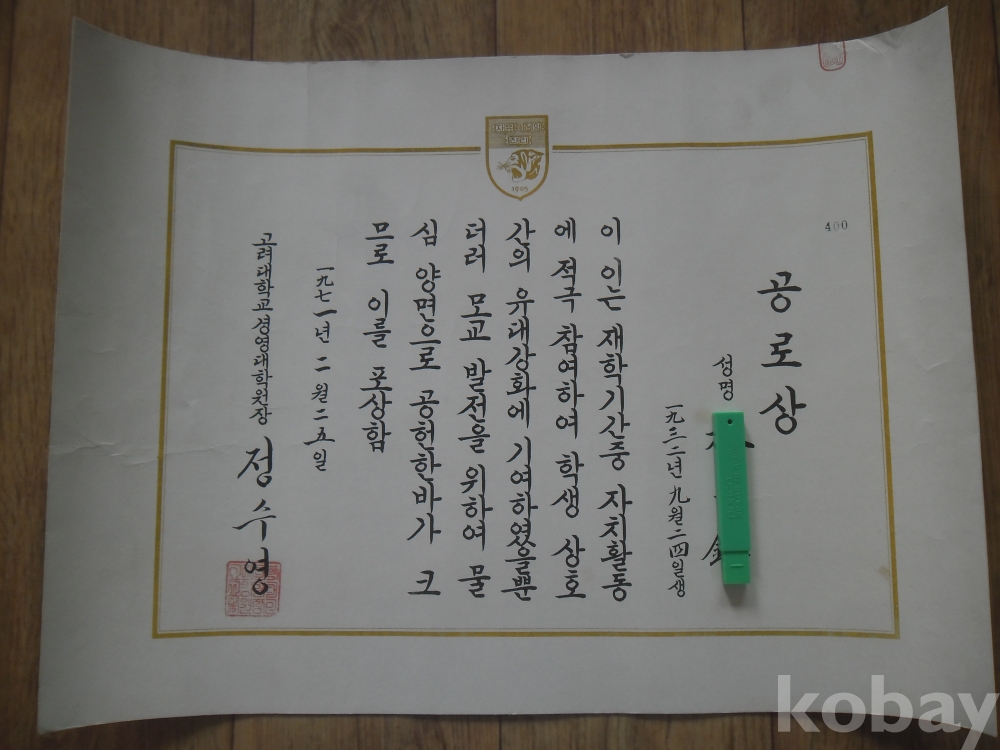 400
공로상
성명
一九三二년 九월 二四일생
이 인는 재학기간중 자치활동
에 적극 참여하여 학생 상호
간의 유대강화에 기여하였을뿐
더러 모교 발전을 위하여 물
심 양면으로 공헌한바가 크
므로 이를 포상함
一九七一년 二월 二五일
고려대학교경영대학원장 정수영
1905
kobay